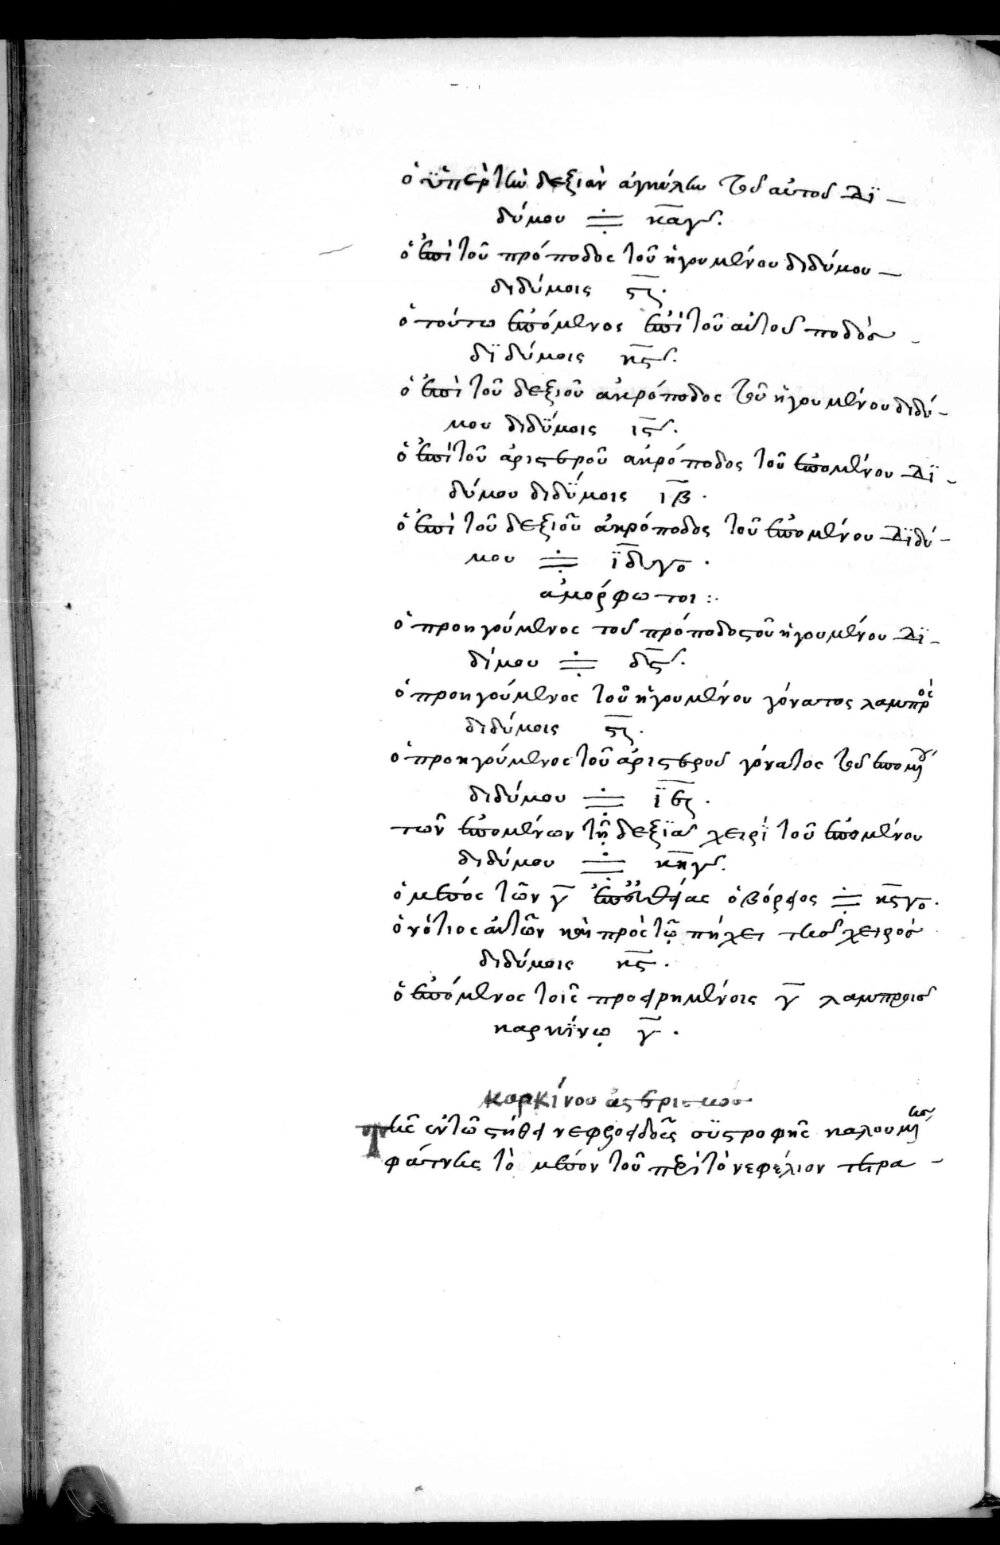 ὁ ὑπὲρ τὴν δεξιὰν ἀγκύλην τοῦ αὐτοῦ δϊ –
δύμου κ̅α̅γ ´.
ὁ ἐπὶ τοῦ πρόποδος τοῦ ἡγουμένου διδύμου –
διδύμοις ς̅ ∠ .
ὁ τούτω ἑπόμενος ἐπὶ τοῦ αὐτοῦ ποδὸς
δϊδύμοις η̅ς ´.
ὁ ἐπὶ τοῦ δεξιοῦ ἀκρόποδος τοῦ ἡγουμένου διδύ –
μου διδΰμοις ι̅ς ´.
ὁ ἐπὶ τοῦ ἀριστεροῦ ἀκρόποδος τοῦ ἑπομένου δϊ –
δύμου διδΰμοις ι̅β̅ .
ὁ ἐπὶ τοῦ δεξιοῦ ἀκρόποδος τοῦ ἑπομένου δϊδύ –
μου ι̅δ̅γο .
ἀμόρφωτοι :.
ὁ προηγούμενος τοῦ πρόποδος τοῦ ἡγουμένου δϊ –
δίμου δ̅ς ´.
ὁ προηγούμενος τοῦ ἡγουμένου γόνατος λαμπρὸς
διδύμοις ς̅ ∠ .
ὁ προηγούμενος τοῦ ἀριστεροῦ γόνατος τοῦ ἑπομένου
διδύμου ι̅ε̅ ∠ .
τῶν ἑπομένων τῆ δεξϊᾶ χειρὶ τοῦ ἑπομένου
διδύμου κ̅η̅γ ´.
ὁ μέσος τῶν γ̅ ἐπ' εὐθείας ὁ βόρειος κ̅ς̅γο .
ὁ νότιος αὐτῶν καὶ πρὸς τῶ πήχει τῆς χειρὸς
διδύμοις κ̅ς̅ .
ὁ ἑπόμενος τοῖς προειρημένοις γ̅ λαμπροῖς
καρκϊνῳ γ̅ .
καρκίνου ἀστερισμὸς
τῆς ἐν τῶ στήθει νεφελοειδοῦς σϋστροφῆς καλουμένης
φάτνης τὸ μέσον τοῦ περὶ τὸ νεφέλιον τετρα –